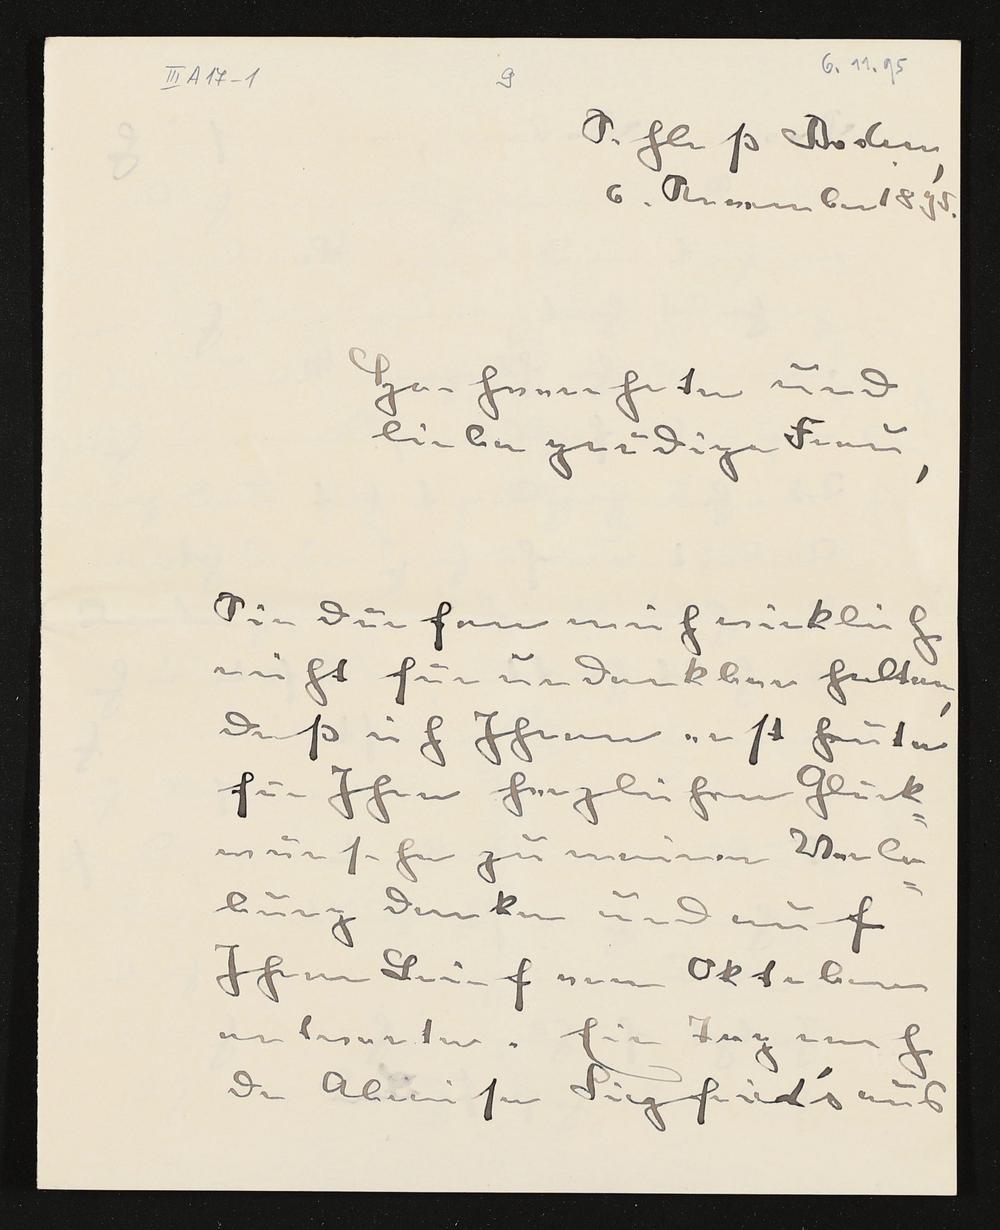 III A 17-1
9
6. 11. 95
Schloß Roden,
6. November 1895.
Hochverehrte und
liebe gnädige Frau,
Sie dürfen mich wirklich
nicht für undankbar halten,
daß ich Ihnen erst heute
für Ihre herzlichen Glück-
wünsche zu meiner Verlo-
bung danke und auf
Ihren Brief vom Oktober
antworte. Ein Tag nach
der Abreise Siegfried's aus